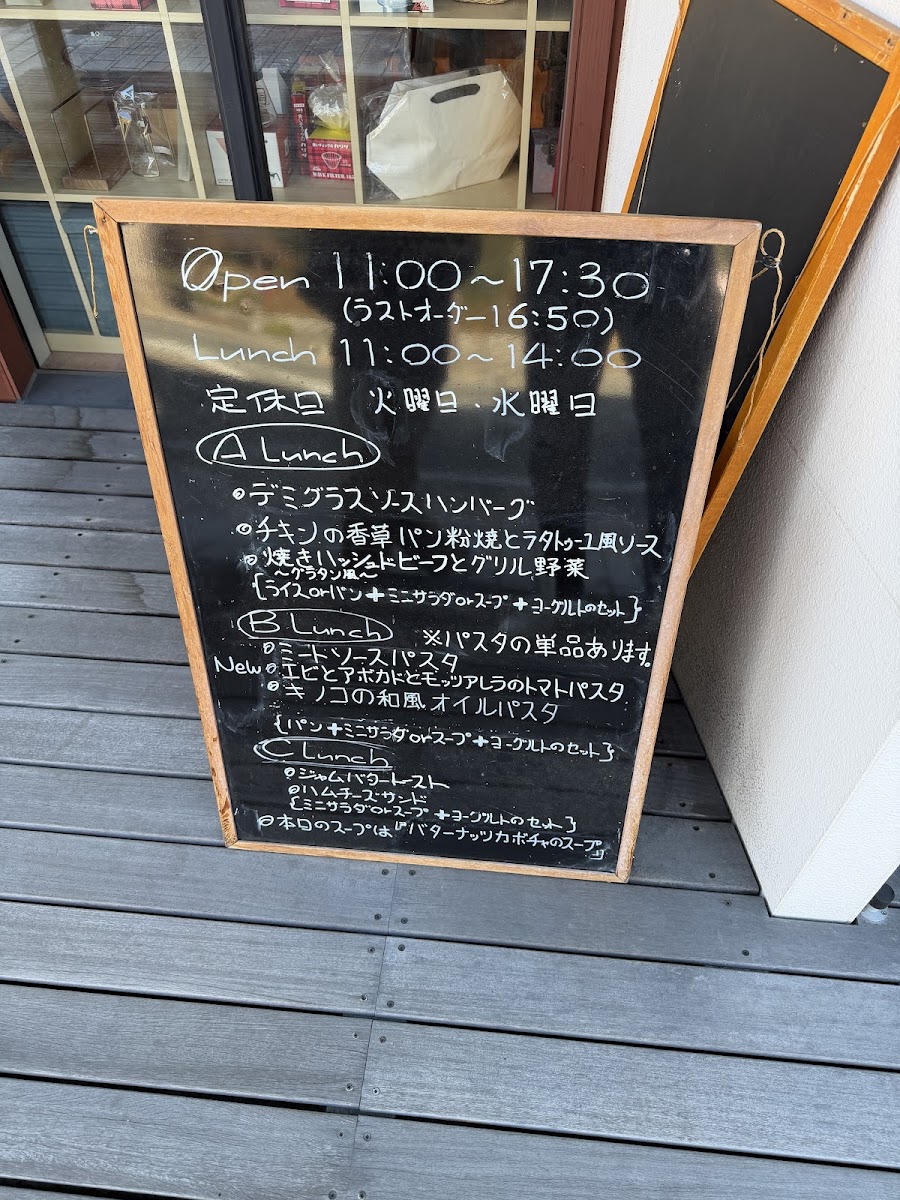 Open 11:00～17:30
(ラストオーダー16:50)
Lunch 11:00～14:00
定休日 火曜日・水曜日
A Lunch
◎デミグラスソースハンバーグ
◎チキンの香草パン粉焼とラタトゥーユ風ソース
◎焼きハッシュドビーフとグリル野菜
～グラタン風～
{ライスorパン+ミニサラダorスープ+ヨーグルトのセット}
B Lunch ※パスタの単品あります。
◎ミートソースパスタ
New◎エビとアボカドとモッツアレラのトマトパスタ
◎キノコの和風オイルパスタ
{パン+ミニサラダorスープ+ヨーグルトのセット}
C Lunch
◎ジャムバタートースト
◎ハムチーズサンド
{ミニサラダorスープ+ヨーグルトのセット}
◎本日のスープは『バターナッツカボチャのスープ』